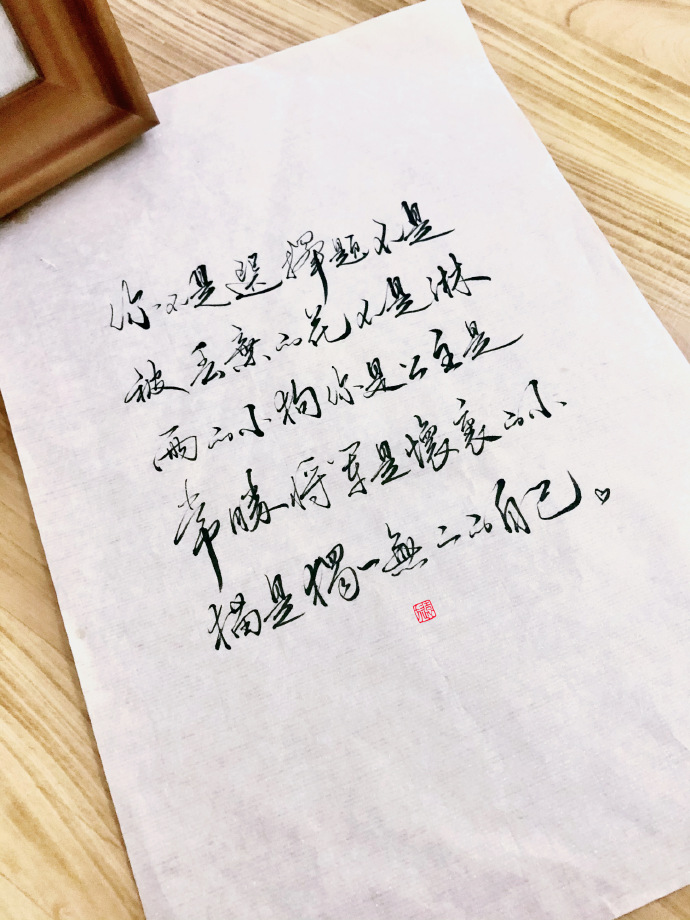 你不是選擇題不是
被丟棄的花不是淋
雨的小狗你是公主是
常勝將軍是懷裏的小
貓是獨一無二的自己。